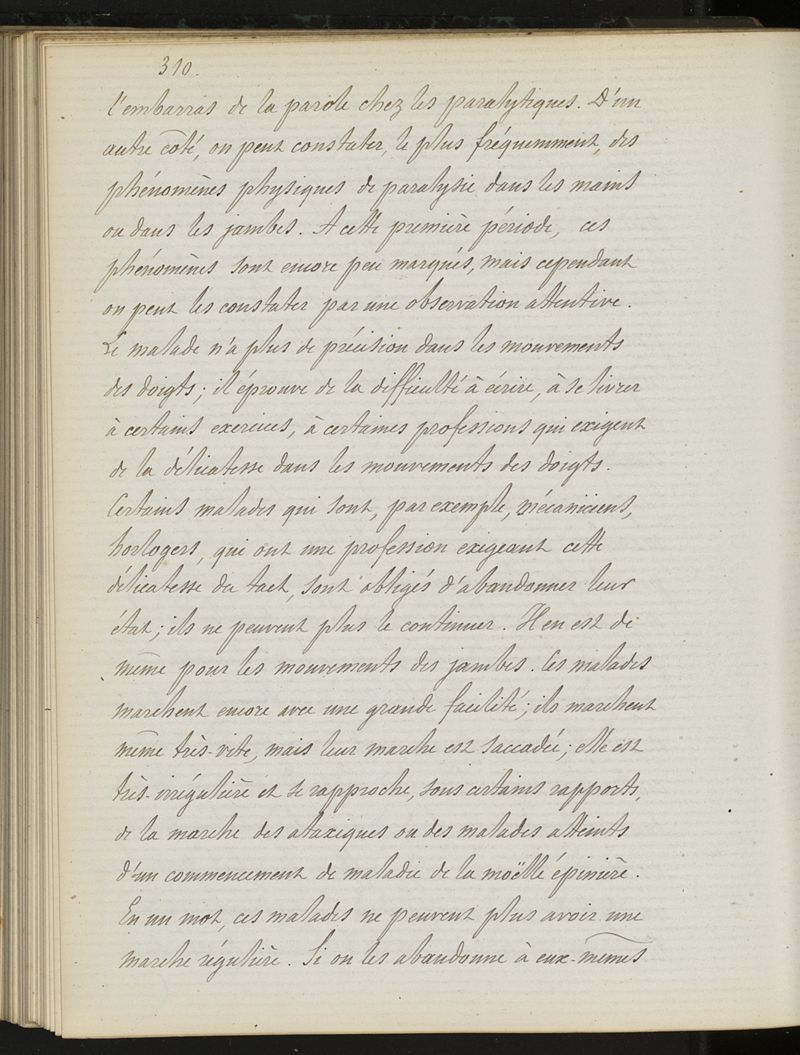 310.
l'embarras de la parole chez les paralytiques. D'un
autre côté, on peut constater, le plus fréquemment, des
phénomènes physiques de paralysie dans les mains
ou dans les jambes. A cette première période, ces
phénomènes sont encore peu marqués, mais cependant
on peut les constater par une observation attentive.
Le malade n'a plus de précision dans les mouvements
des doigts; il éprouve de la difficulté à écrire, à se livrer
à certains exercices, à certaines professions qui exigent
de la délicatesse dans les mouvements des doigts.
Certains malades qui sont, par exemple, mécaniciens,
horlogers, qui ont une profession exigeant cette
délicatesse du tact, sont obligés d'abandonner leur
état; ils ne peuvent plus le continuer. Il en est de
même pour les mouvements des jambes. Ces malades
marchent encore avec une grande facilité; ils marchent
même très-vite, mais leur marche est saccadée; elle est
très-irrégulière et se rapproche, sous certains rapports,
de la marche des ataxiques ou des malades atteints
d'un commencement de maladie de la moëlle épinière.
En un mot, ces malades ne peuvent plus avoir une
marche régulière. Si on les abandonne à eux-mêmes